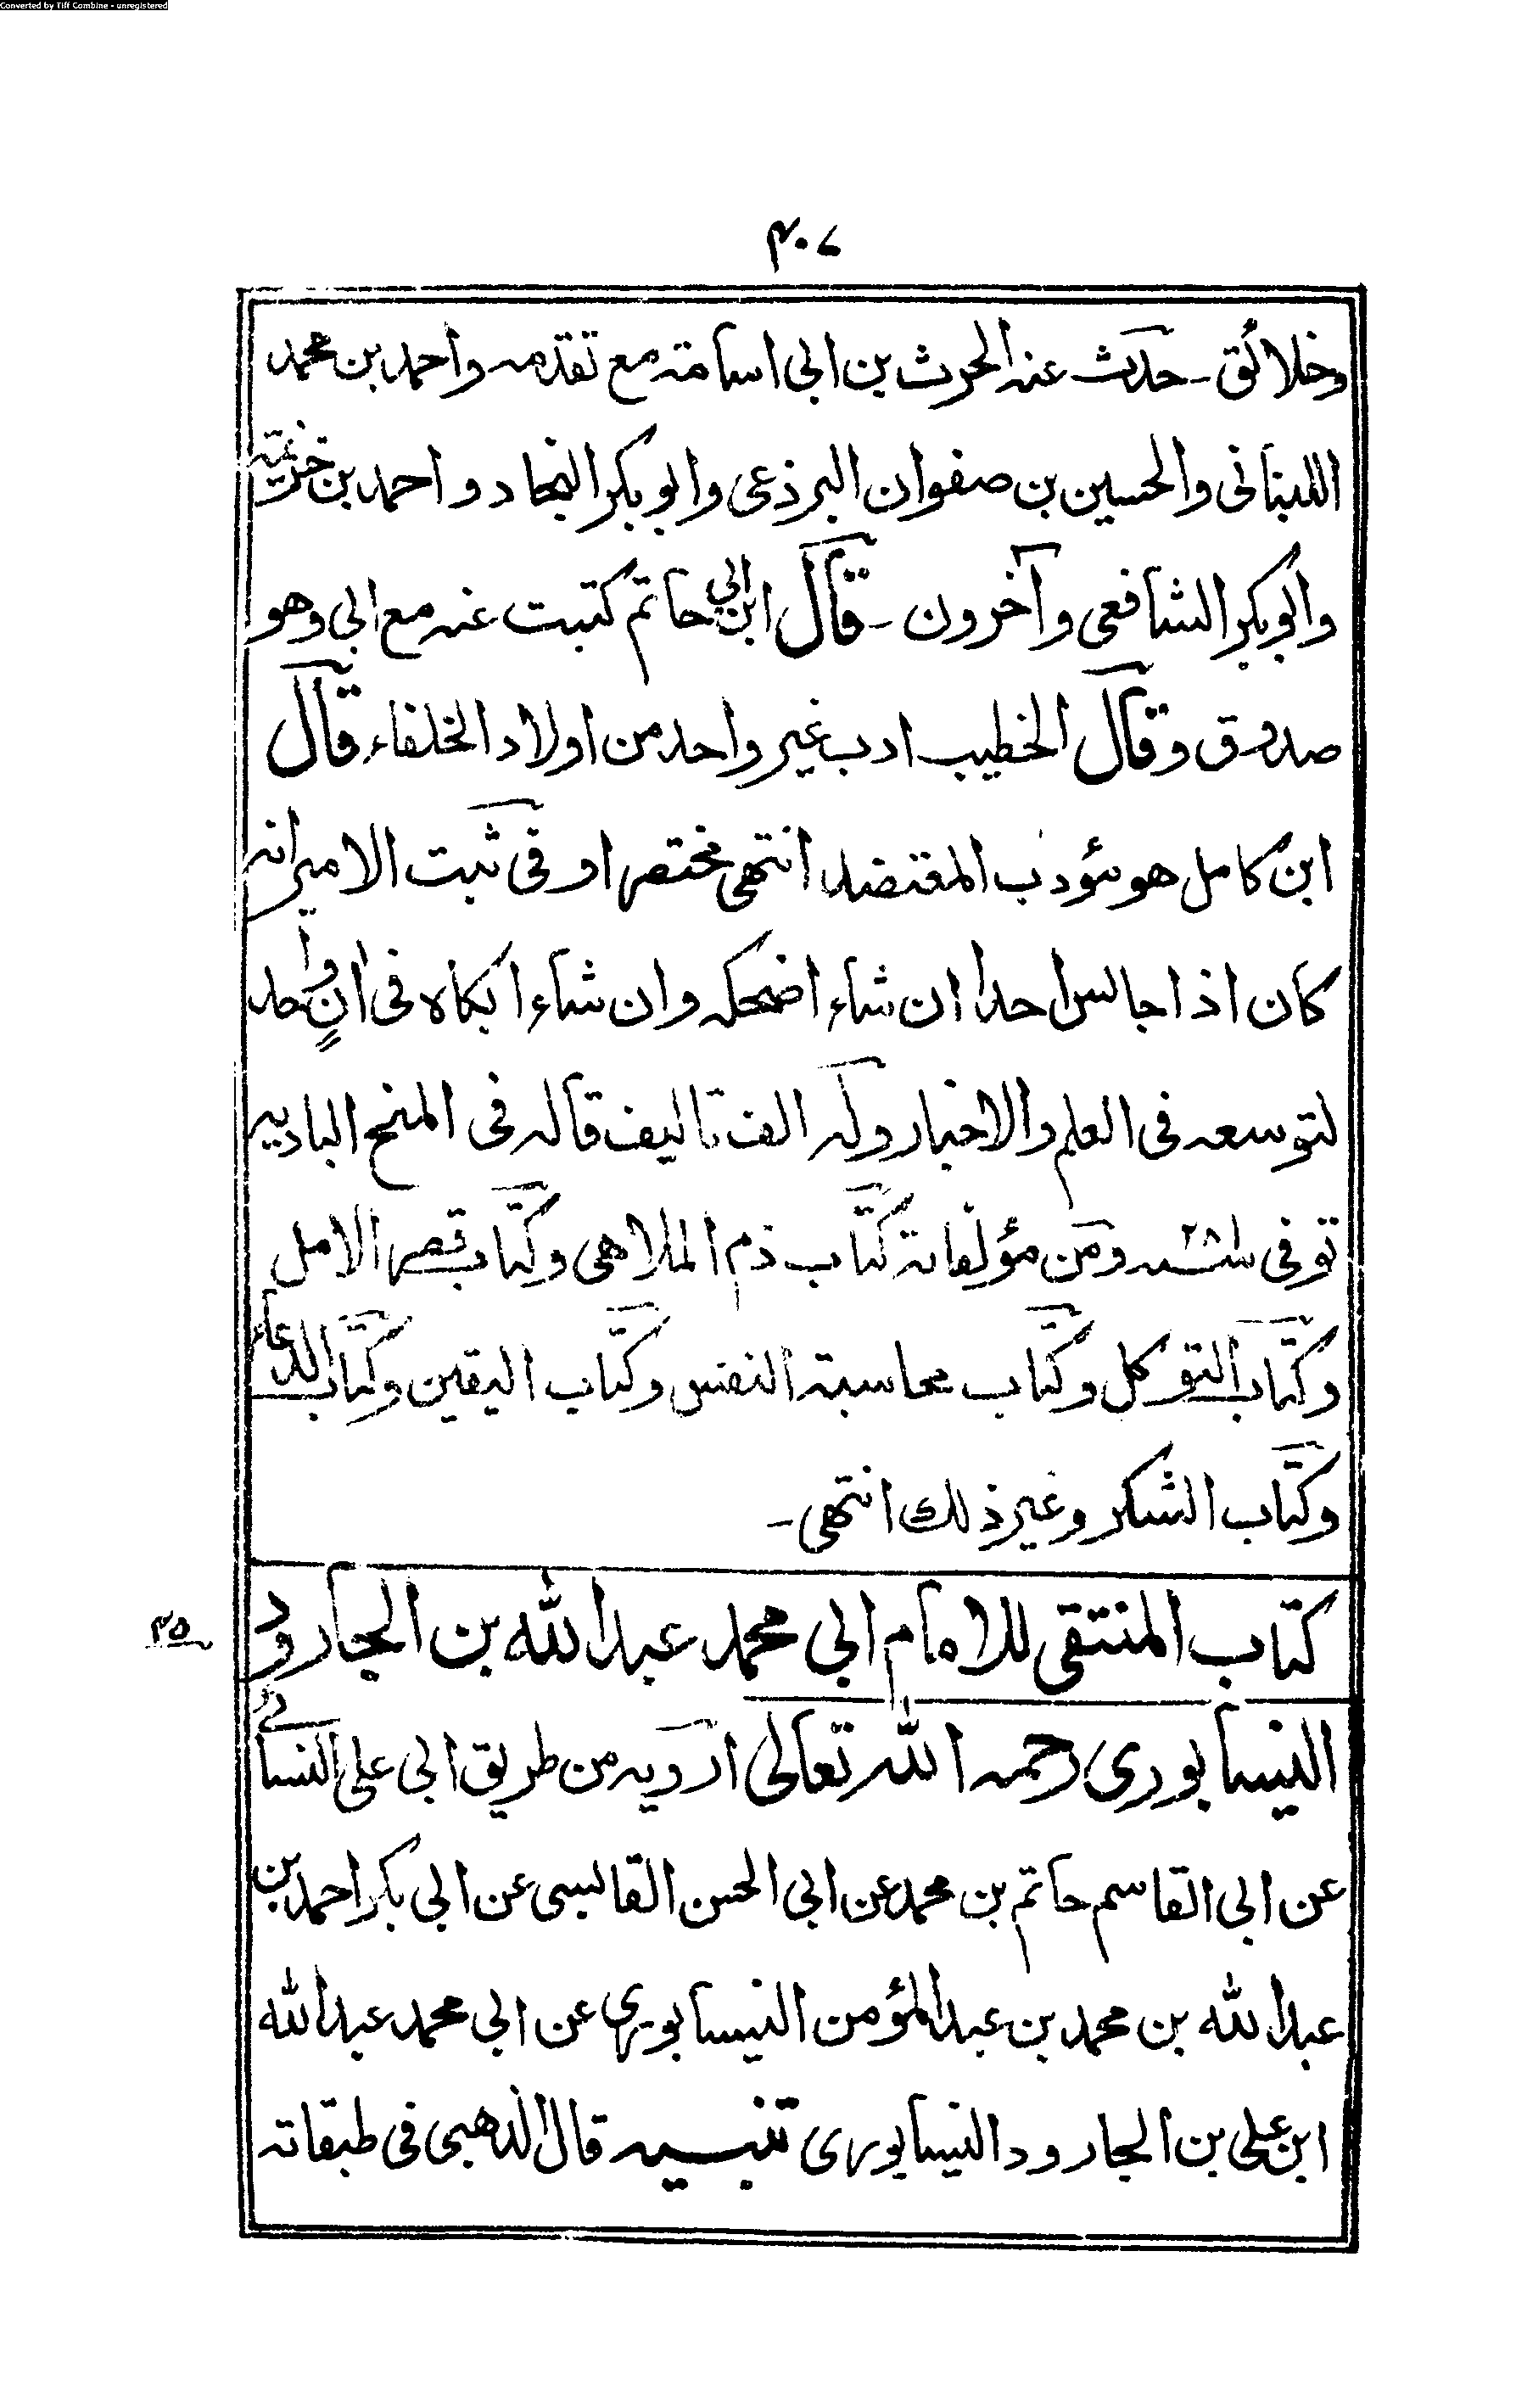 Converted by Tiff Combine - unregistered
٣٠٧
وخلائق - حدث عنه الحرث بن ابى اسامة مع تقدمه واحمد بن محمد
اللبنانى والحسين بن صفوان البرذعى وابو بكر النجاد واحمد بن خزيمة
وابو بكر الشافعى وآخرون - قال ابن ابي حاتم كتبت عنه مع ابى وهو
صدوق وقال الخطيب ادب غير واحد من اولاد الخلفاء قال
ابن كامل هو مؤدب المقتضد انتهى مختصرا و فى ثبت الامير انه
كان اذا جالس احدا ان شاء اضحكه وان شاء ابكاه فى انٍ واحد
لتوسعه فى العلم والاخبار وله الف تاليف قاله فى المنح الباديه
توفى ٢٨١ سنه ومن مؤلفاته كتاب ذم الملاهى وكتاب قصر الامل
وكتاب التوكل وكتاب محاسبة النفس وكتاب اليقين وكتاب الدعاء
وكتاب الشكر وغير ذلك انتهى -
كتاب المنتقى للامام ابي محمد عبد الله بن الجارود
٣٥
النيسابورى رحمه الله تعالى ارويه من طريق ابى على الغسانے
عن ابى القاسم حاتم بن محمد عن ابى الحسن القابسى عن ابى بكر احمد بن
عبد الله بن محمد بن عبد المؤمن النيسابورى عن ابى محمد عبد الله
ابن على بن الجارود النيسابورى تنبيه قال الذهبى فى طبقاته